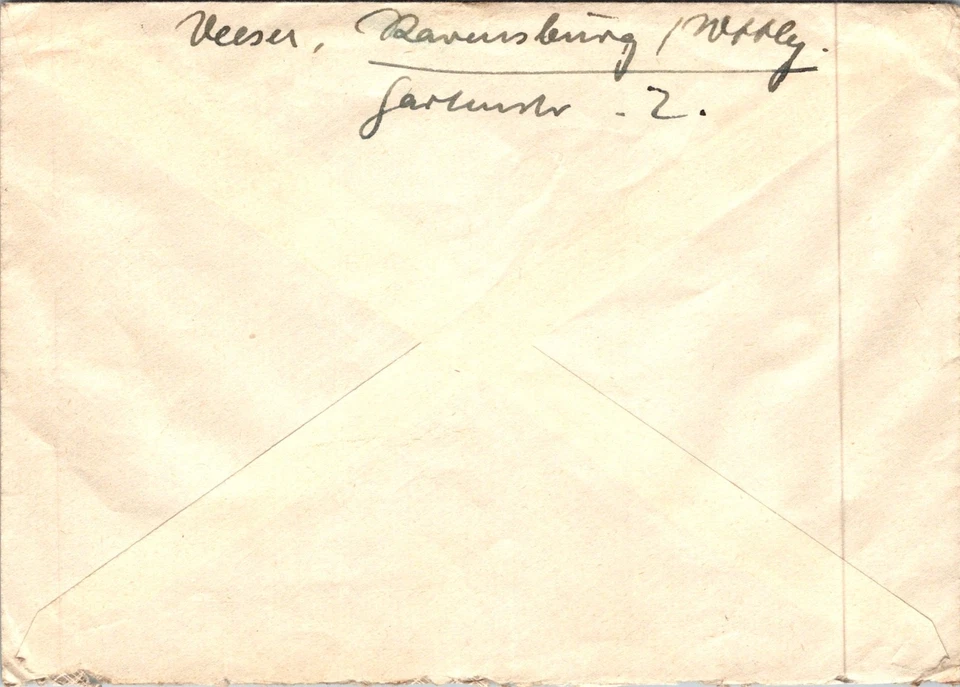 Veeser, Ravensburg /Wttbg.
Gartenstr. 2.